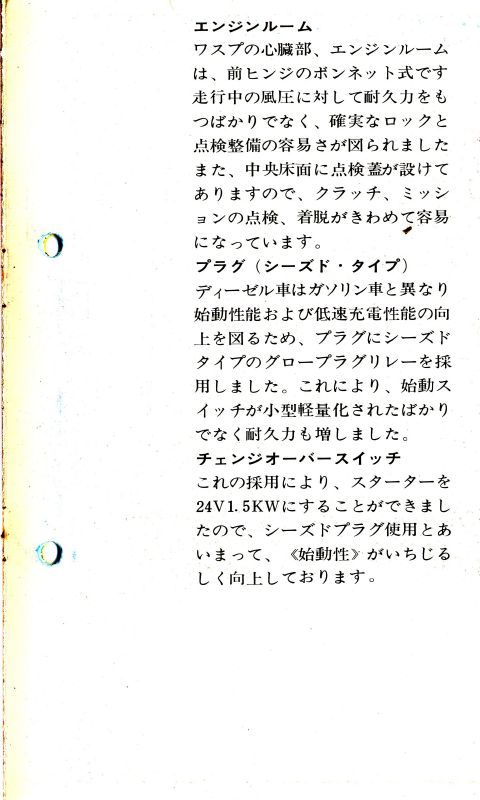 エンジンルーム
ワスプの心臓部、エンジンルーム
は、前ヒンジのボンネット式です
走行中の風圧に対して耐久力をも
つばかりでなく、確実なロックと
点検整備の容易さが図られました
また、中央床面に点検蓋が設けて
ありますので、クラッチ、ミッシ
ョンの点検、着脱がきわめて容易
になっています。
プラグ（シーズド・タイプ）
ディーゼル車はガソリン車と異なり
始動性能および低速充電性能の向
上を図るため、プラグにシーズド
タイプのグロープラグリレーを採
用しました。これにより、始動ス
イッチが小型軽量化されたばかり
でなく耐久力も増しました。
チェンジオーバースイッチ
これの採用により、スターターを
24V1.5KWにすることができまし
たので、シーズドプラグ使用とあ
いまって、《始動性》がいちじる
しく向上しております。